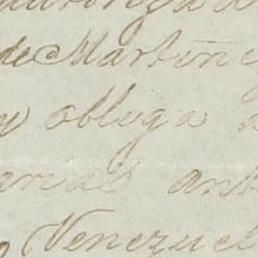 de Martin
y obliga a
arias ant
Venezuel